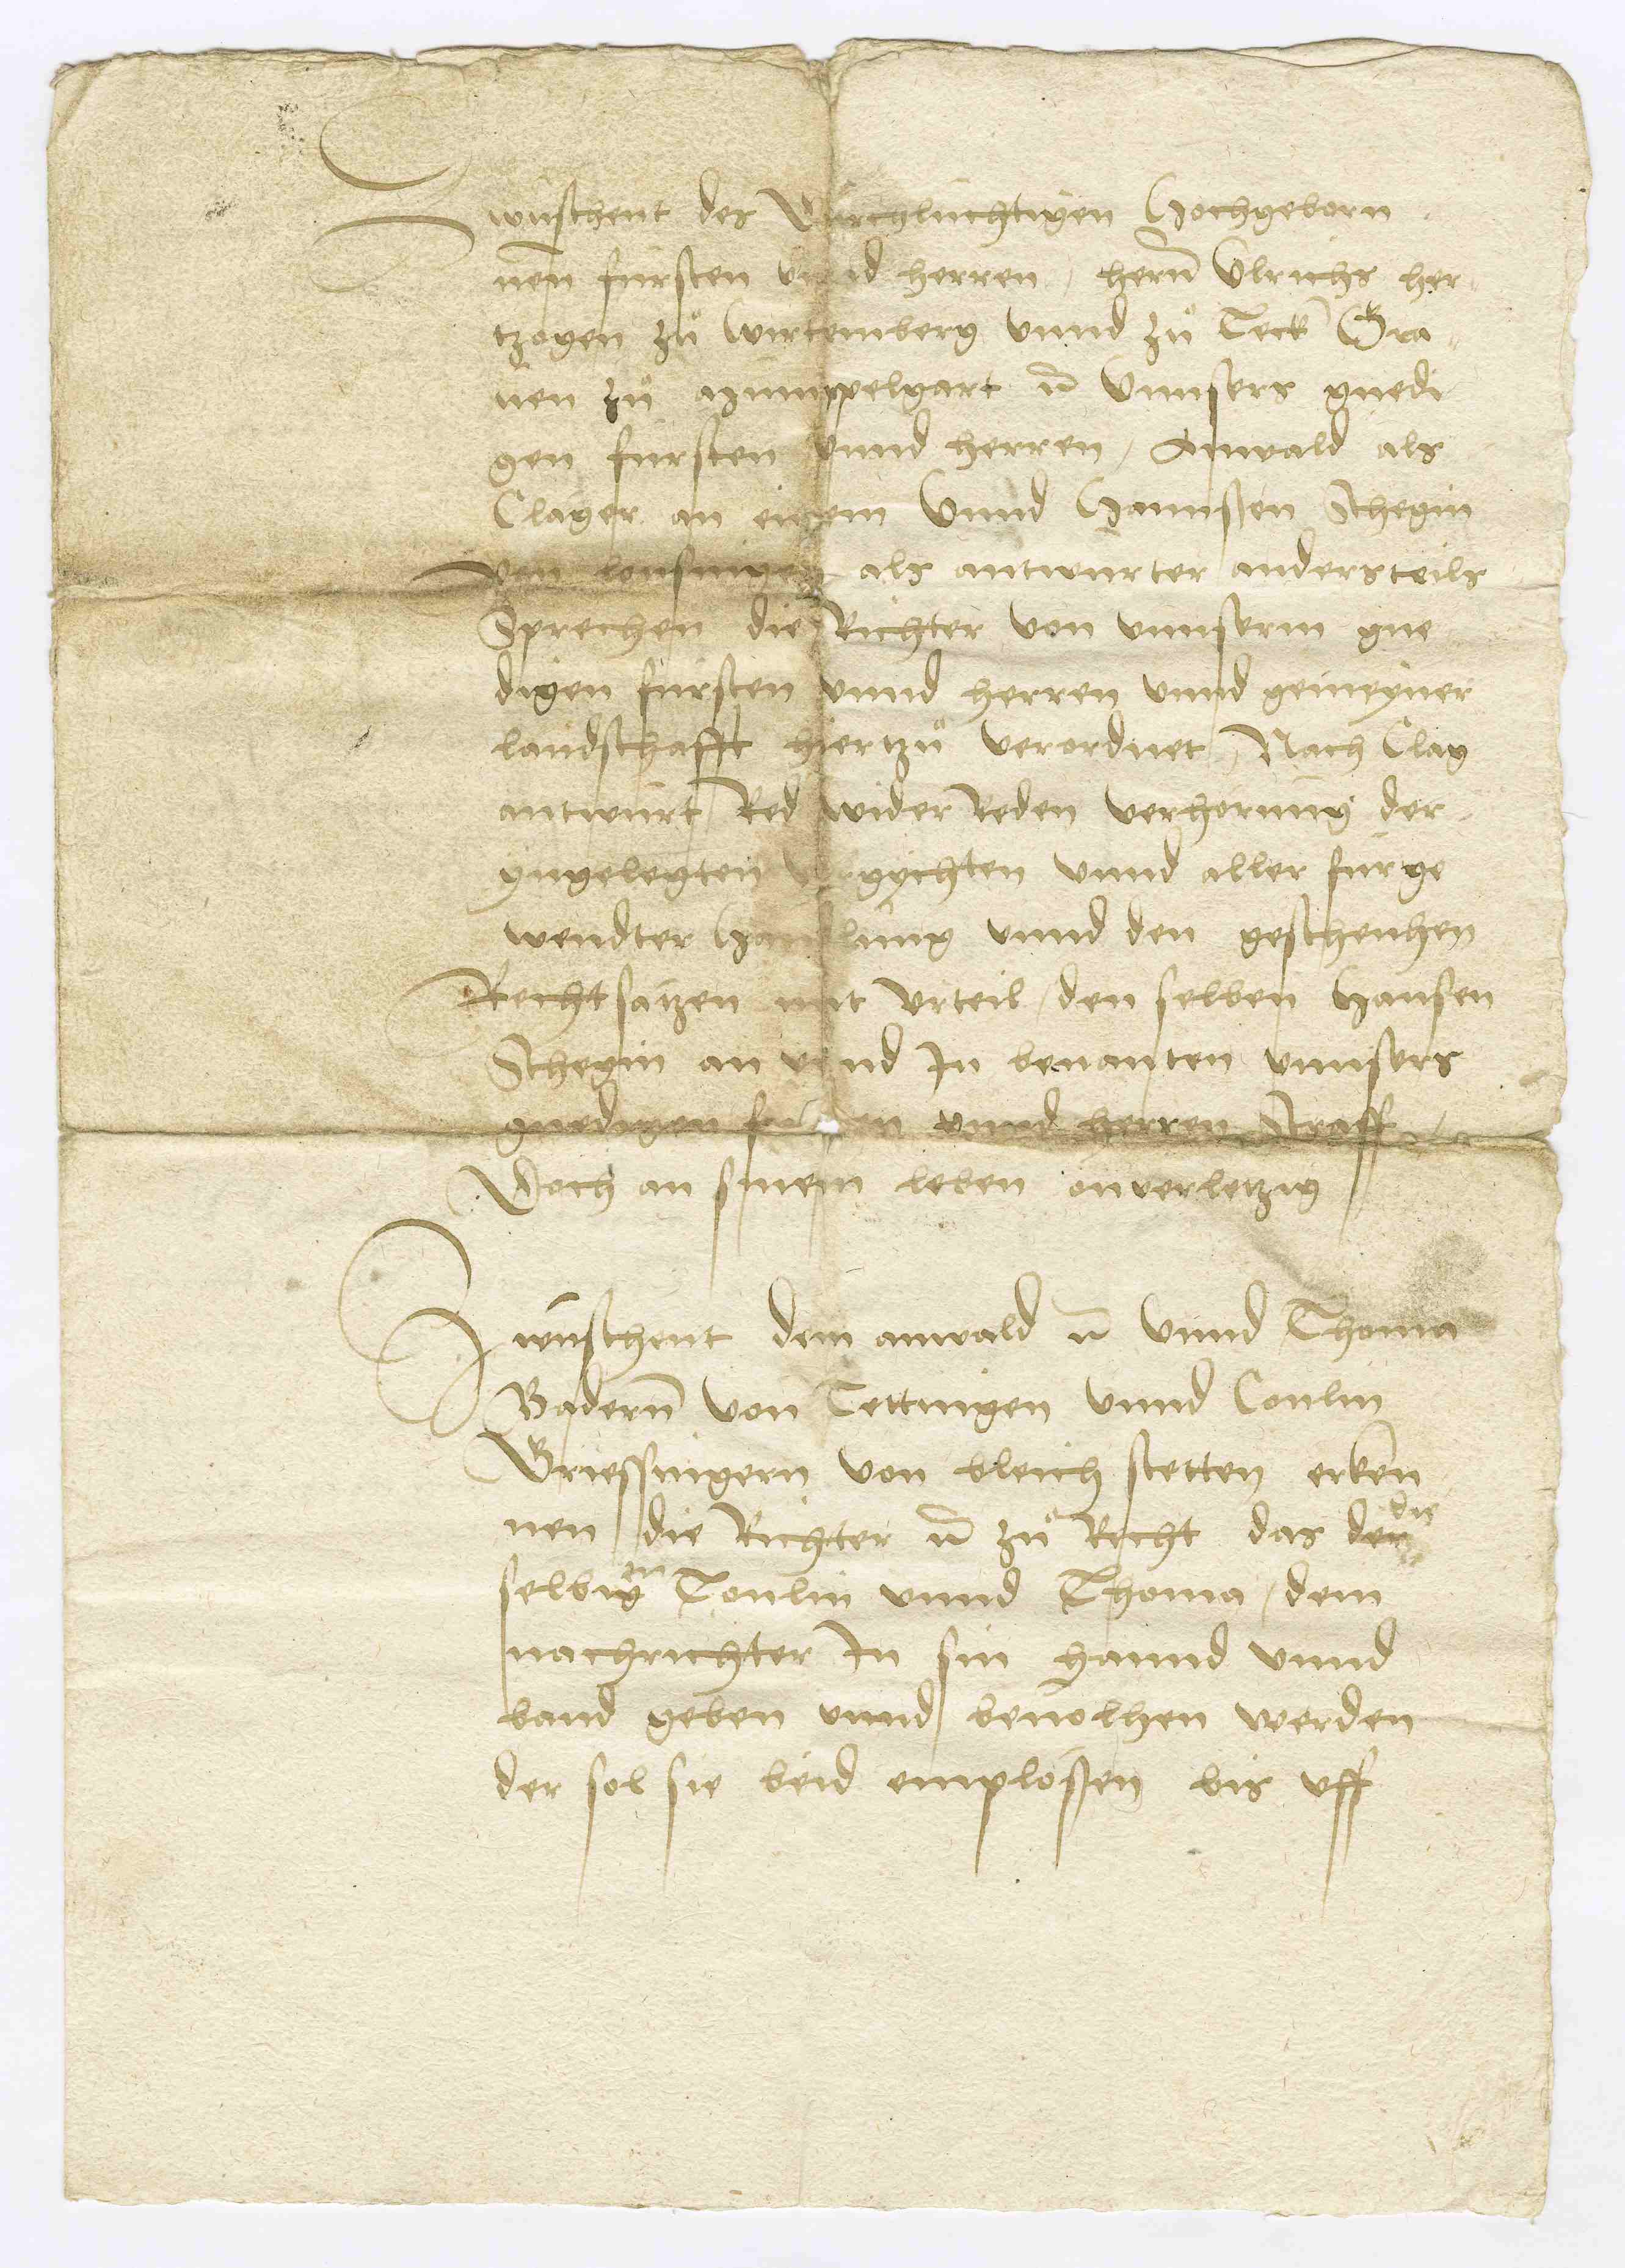 Zwuschent des Durchluchtigen Hochgeborn
nen fursten vnnd herren, hern̄ Vlrichs her
tzogen zů Wirtemberg vnnd zů Teck Gra
uen zů Mumppelgart ꝛc̄ Vnnsers gnedi
gen fursten vnnd herren, Anwald als
Clager an einem Vnnd Hannsen Schegin
von als antwurter andersteils
Sprechen die Richter von vnnserm gne
digen fursten vnnd herren vnnd gemeyner
landschafft hiertzů verordnet, Nach Clag
antwurt Red wider Reden verhorung der
yngelegten vrgychten vnnd aller furge
wendter Handlung vnnd den geschenhen
Rechtsatzen mit vrteil, den selben Hansen
Schegin an vnnd In benanten vnnsers
gnedigen fursten vnnd herren straff,
Doch an sinem leben onverletzig
Zwuschent dem anwald ꝛc̄ Vnnd Thoma
Badern̄ von Tettingen Vnnd Conlin
Griessingern von bleichstetten erken̄
nen die Richter ꝛc̄ zů Recht das die
selbigen Conlin vnnd Thoma, dem
nachrichter In sin hannd vnnd
band geben vnnd beuolhen werden
der sol sie beid emplossen bis vff